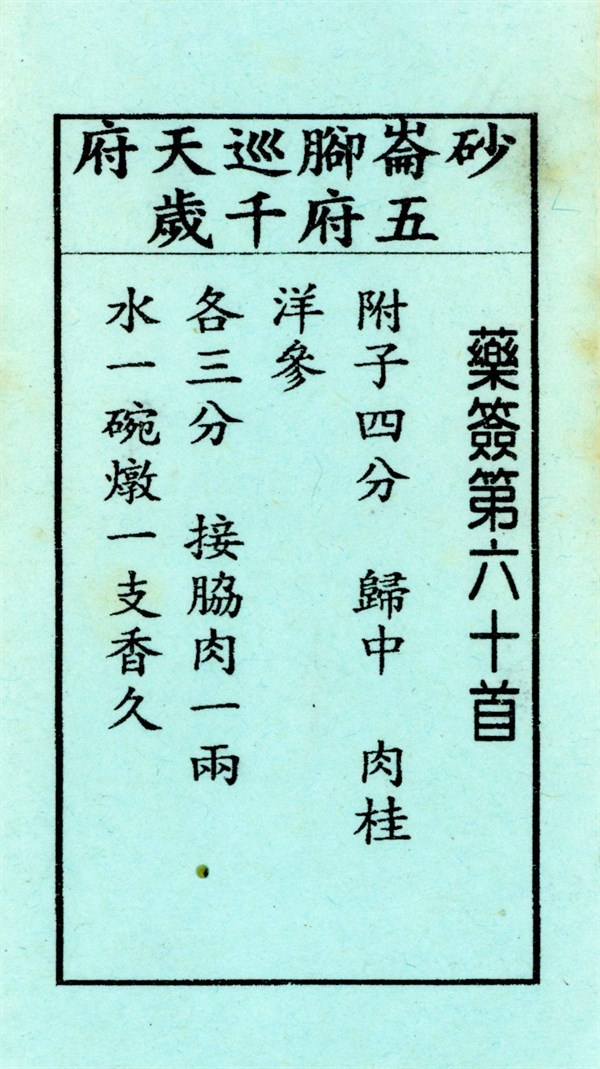 砂崙腳巡天府
五府千歲
藥簽第六十首
附子四分　歸中　肉桂
洋參
各三分　接脇肉一兩
水一碗燉一支香久